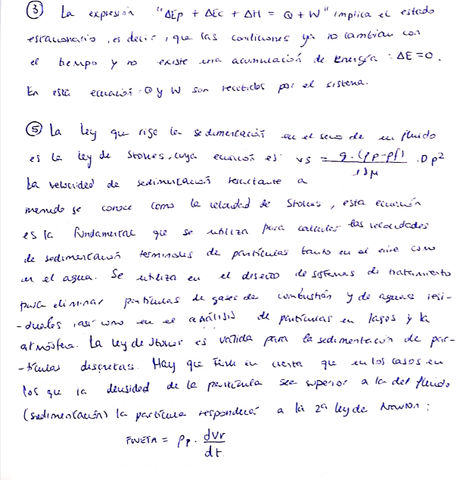 ③ La expresión "ΔEp + ΔEc + ΔH = Q + W" implica el estado
estacionario, es decir, que las condiciones ya no cambian con
el tiempo y no existe una acumulación de Energía: ΔE=0.
En esta ecuación Q y W son recibidos por el sistema.
⑤ La Ley que rige la sedimentación en el seno de un fluido
es la Ley de Stokes, cuya ecuación es: vs = g·(ρp-ρf)/18μ · Dp²
La velocidad de sedimentación resultante a
menudo se conoce como la velocidad de Stokes, esta ecuación
es la fundamental que se utiliza para calcular las velocidades
de sedimentación terminales de partículas tanto en el aire como
en el agua. Se utiliza en el diseño de sistemas de tratamiento
para eliminar partículas de gases de combustión y de aguas resi-
-duales, así como en el análisis de partículas en lagos y la
atmósfera. La ley de Stokes es válida para la sedimentación de par-
-tículas discretas. Hay que tener en cuenta que en los casos en
los que la densidad de la partícula sea superior a la del fluido
(sedimentación) la partícula responderá a la 2ª Ley de Newton:
FNETA = ρp · dvr/dt